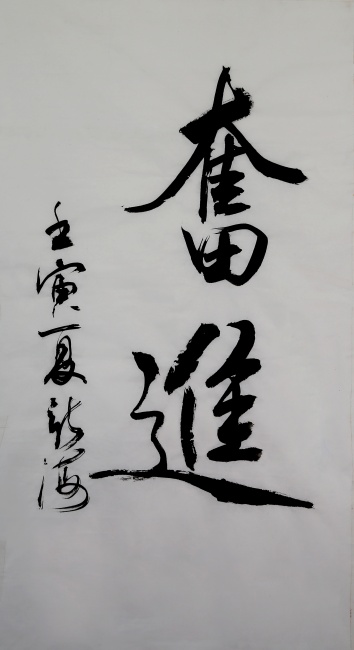 奮進
壬寅夏新海